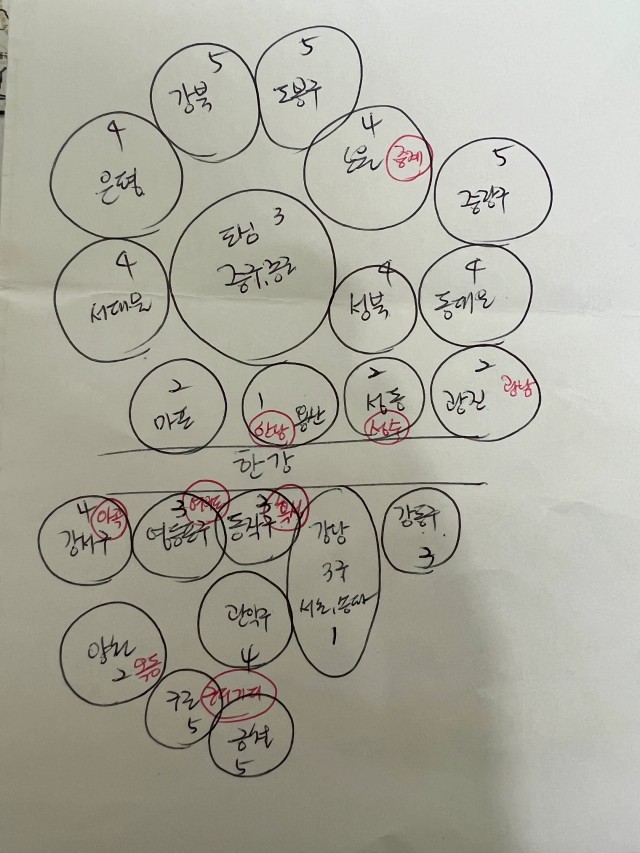 5
강북
5
도봉구
4
은평
4
노원
중계
5
중랑구
도심 3
중구, 종로
4
서대문
4
성북
4
동대문
2
마포
1
용산
한남
2
성동
성수
2
광진
광남
한강
4
마곡
강서구
3
여의도
영등포구
3
흑석
동작구
강남
3구
서초, 송파
1
강동구
3
관악구
4
양천
2
목동
구로
5
금천
5